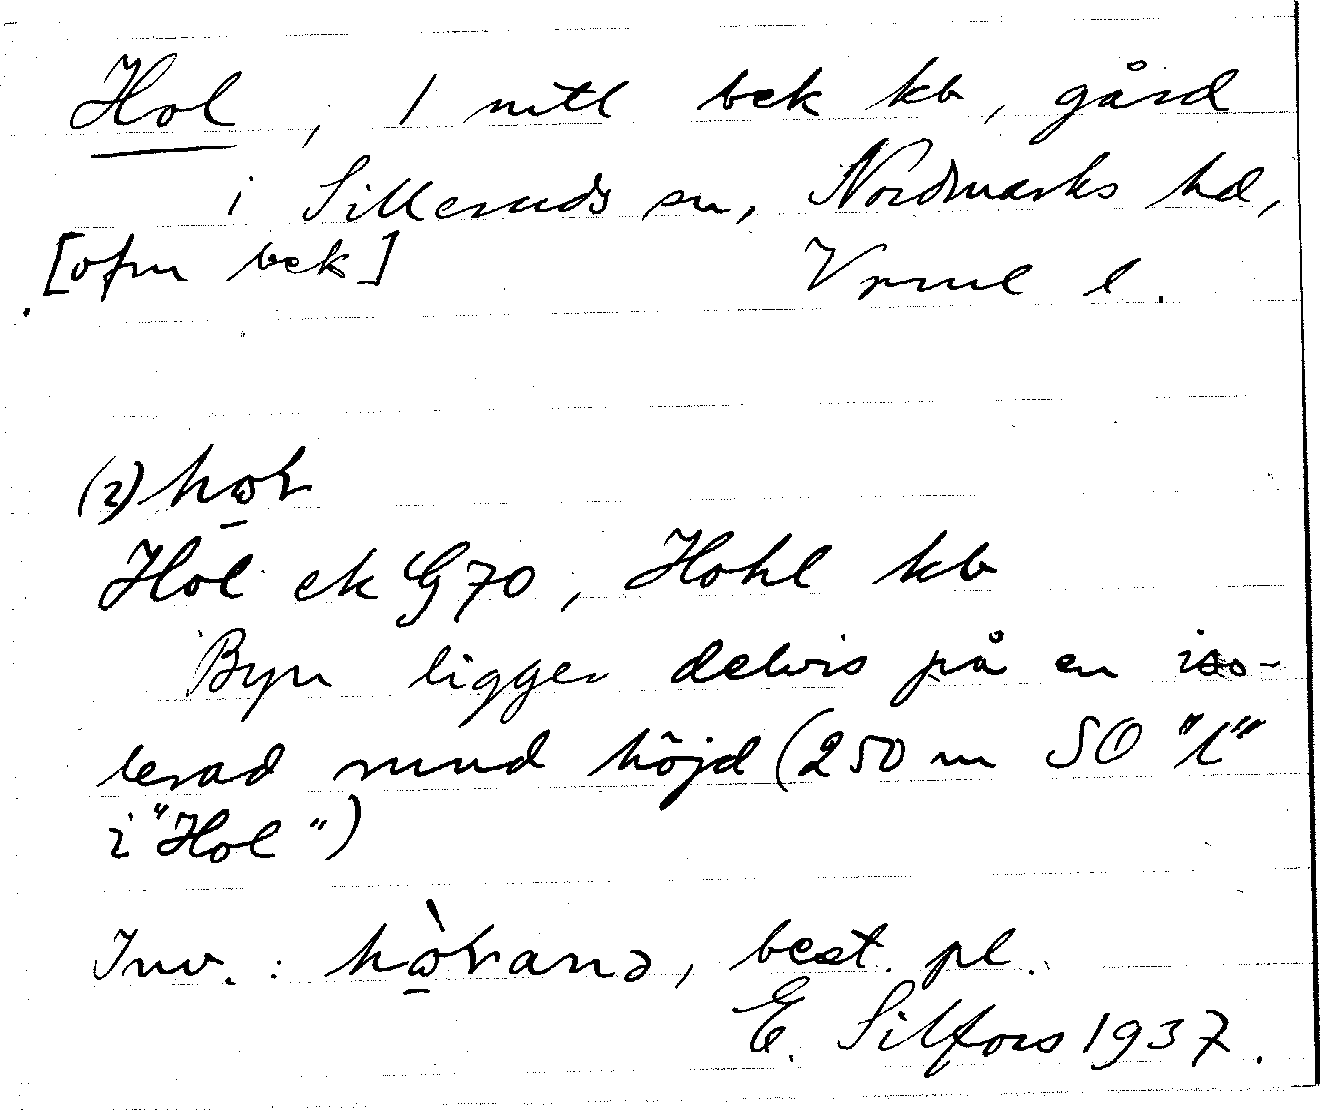 Hol, 1 mtl bek kb, gård
i Silleruds sn, Nordmarks hd,
[ofm bek] Vrml l.
(2) hωɽ
Hol ek G70, Hohl kb
Byn ligger delvis på en iso-
lerad rund höjd (250 m SO "l"
i "Hol")
Inv.: hὼɽana, best. pl.
E. Silfors 1937.